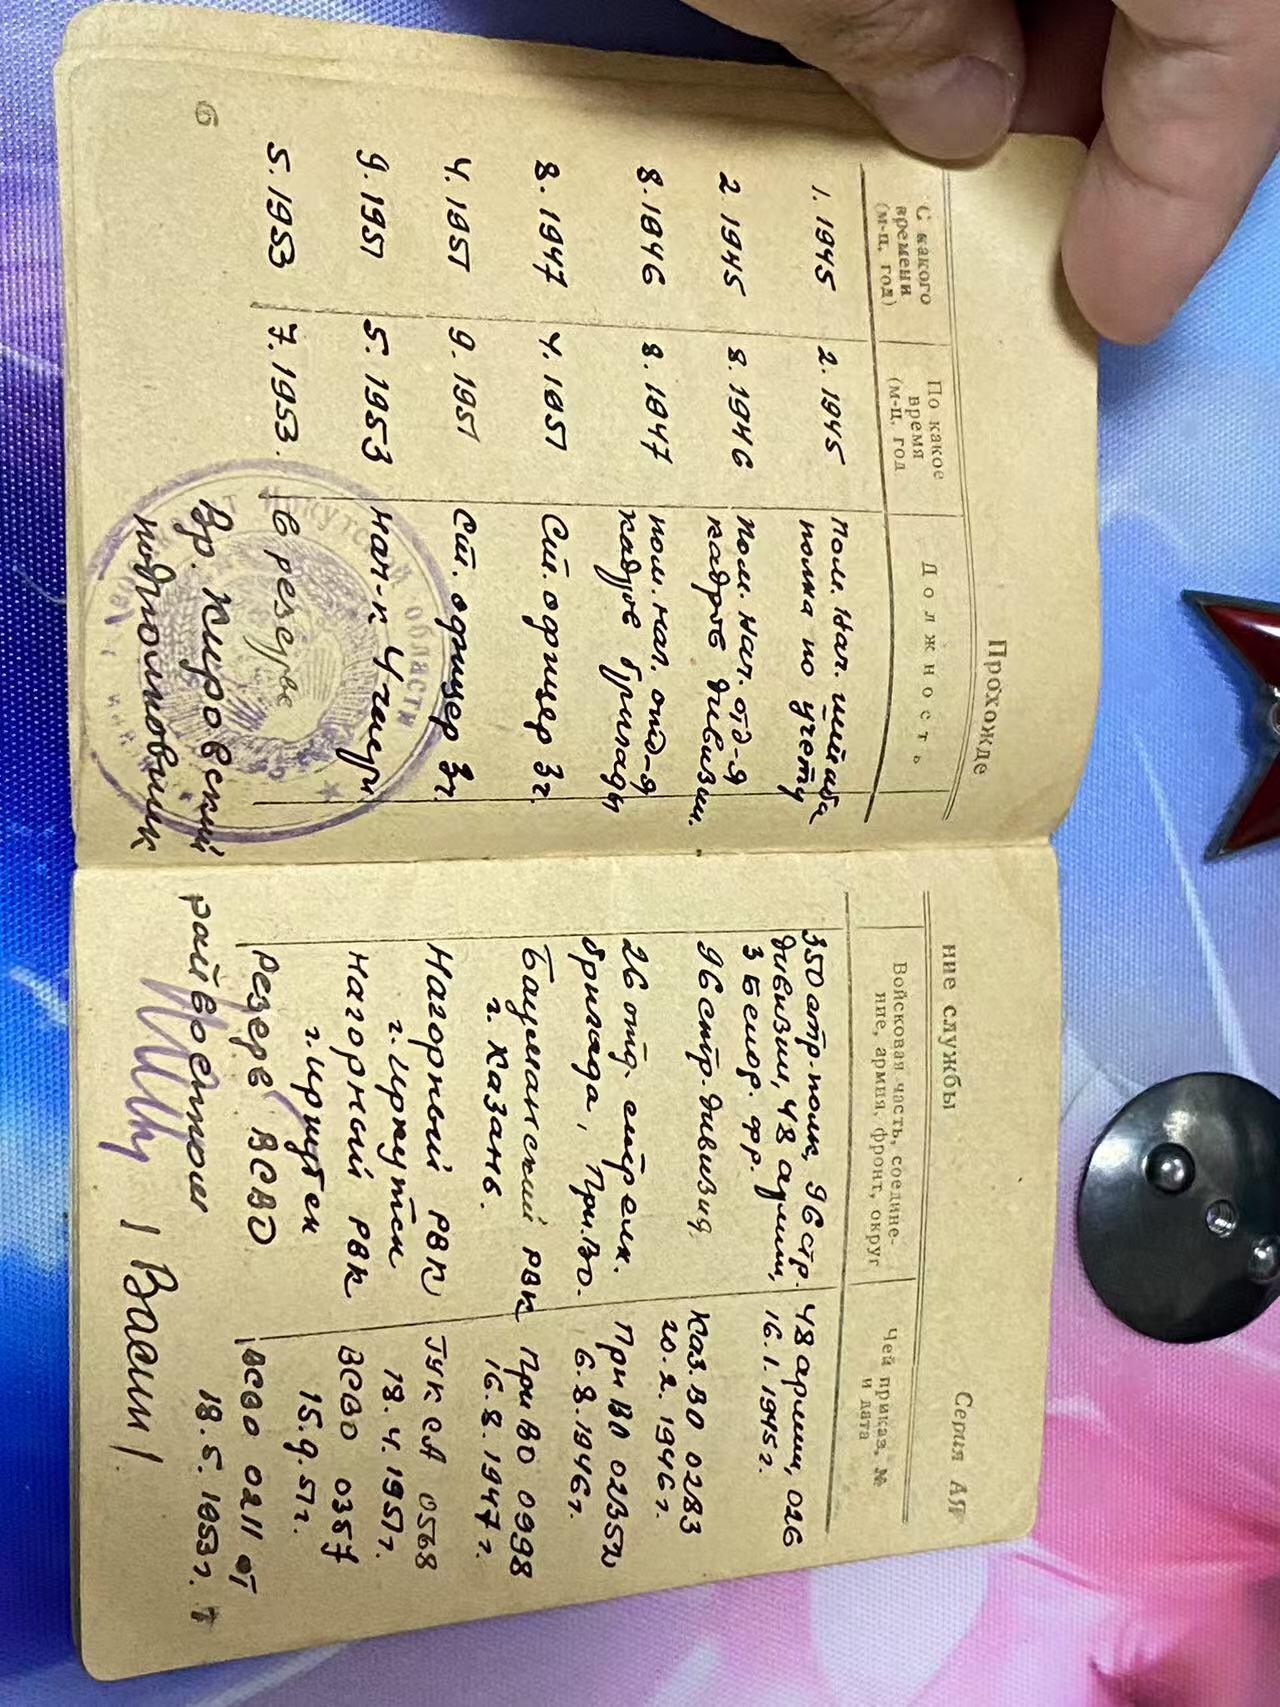 Прохожде
С какого
времени
(м-ц, год)
По какое
время
(м-ц. год
Должность
1. 1945
2. 1945
Пом. Нач. штаба
полка по учету
2 1945
8. 1946
Пом. Нач. отд-я
кадров дивизии.
8. 1946
8. 1947
Пом. нач. отд-я
кадров бригады
8. 1947
4. 1951
Ст. офицер 3ч.
4. 1951
9. 1951
Ст. офицер 3ч.
9. 1951
5. 1953
Нач-к 4 части
5. 1953
7. 1953.
В резерве
Вр. Кировский
подполковник
Иркутской области
6
ние службы
Серия АЯ
Войсковая часть, соедине-
ние, армия, фронт, округ
Чей приказ, №
и дата
350 стр. полк, 96 стр.
дивизии, 48 армии,
3 Белор. фр.
48 армии, 026
16. 1. 1945 г.
96 стр. дивизия
Каз. ВО 0283
20. 2. 1946 г.
26 отд. стрелк.
бригада, При.ВО.
При ВО 02352
6. 8. 1946 г.
Бауманский РВК
г. Казань.
При ВО 0998
16. 8. 1947 г.
Нагорный РВК
г. Иркутск
ГУК СА 0568
18. 4. 1951 г.
Нагорный РВК
г. Иркутск
ВСВО
15. 9. 51 г.
резерв ВСВО
ВСВО 0211 от
18. 5. 1953 г.
райвоенком